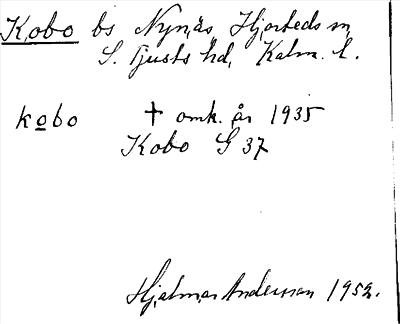 Kobo bs Nynäs, Hjorteds sn
S. Tjusts hd, Kalm. l.
kobo † omk. år 1935
Kobo G 37
Hjalmar Andersson 1952.